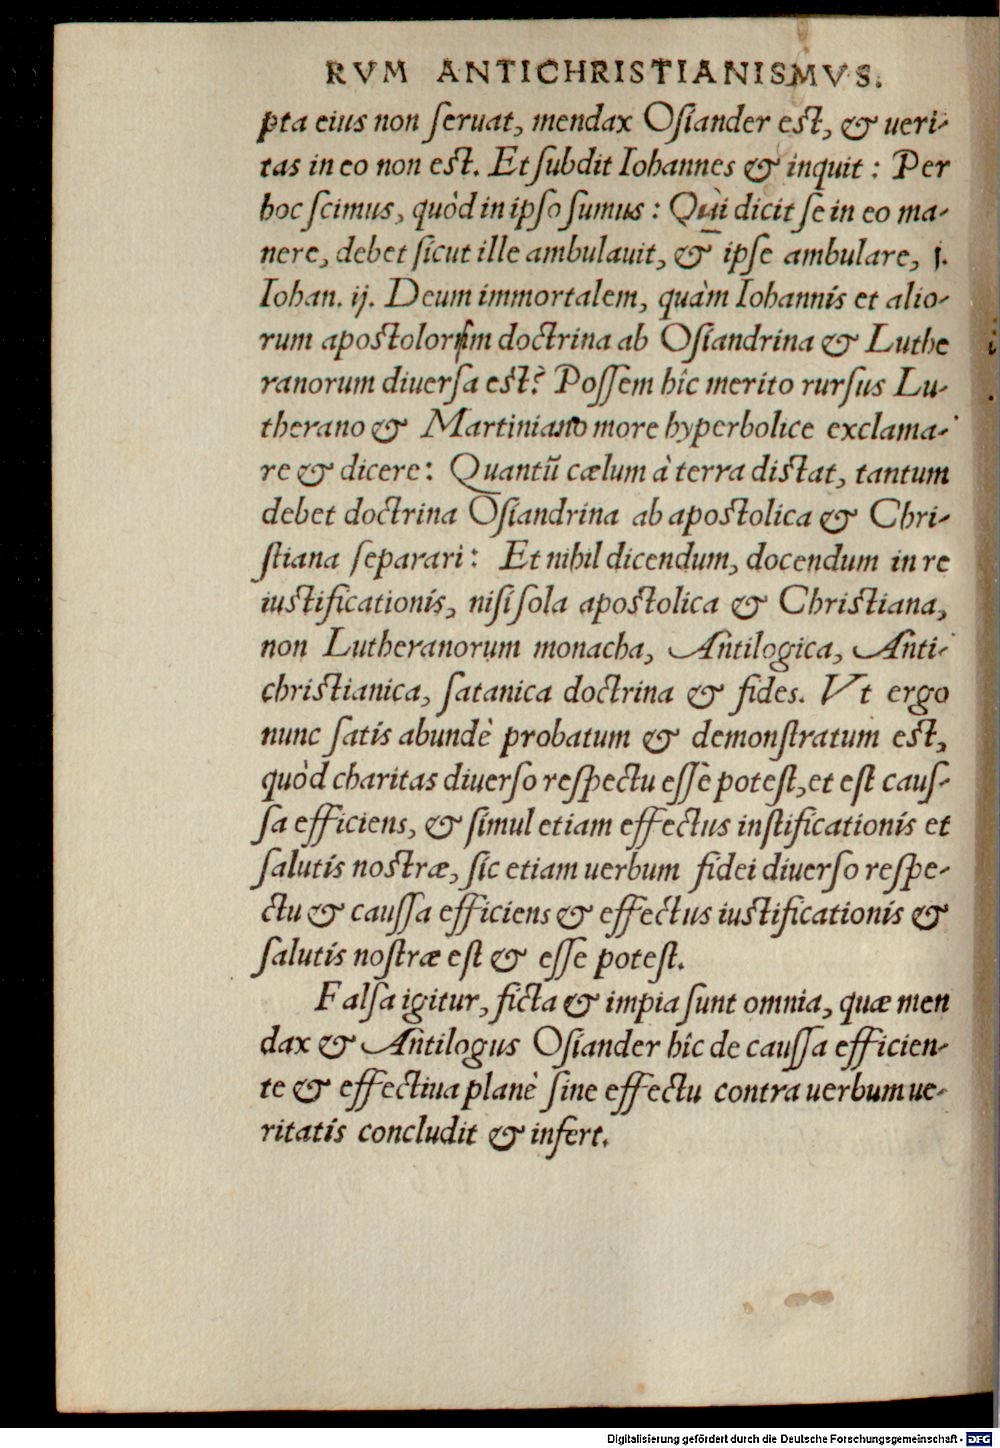 RVM ANTICHRISTIANISMVS.
pta eius non ſeruat, mendax Oſiander eſt, & ueri-
tas in eo non eſt. Et ſubdit Iohannes & inquit: Per
hoc ſcimus, quòd in ipſo ſumus: Qui dicit ſe in eo ma-
nere, debet ſicut ille ambulauit, & ipſe ambulare, j.
Iohan. ij. Deum immortalem, quàm Iohannis et alio-
rum apoſtolorum doctrina ab Oſiandrina & Luthe
ranorum diuerſa eſt? Poſſem hîc merito rurſus Lu-
therano & Martiniano more hyperbolice exclama-
re & dicere: Quantũ cælum à terra diſtat, tantum
debet doctrina Oſiandrina ab apoſtolica & Chri-
ſtiana ſeparari: Et nihil dicendum, docendum in re
iuſtificationis, niſi ſola apoſtolica & Chriſtiana,
non Lutheranorum monacha, Antilogica, Anti-
chriſtianica, ſatanica doctrina & fides. Vt ergo
nunc ſatis abundè probatum & demonſtratum eſt,
quòd charitas diuerſo reſpectu eſſe poteſt, et eſt cauſ-
ſa efficiens, & ſimul etiam effectus inſtificationis et
ſalutis noſtræ, ſic etiam uerbum fidei diuerſo reſpe-
ctu & cauſſa efficiens & effectus iuſtificationis &
ſalutis noſtræ eſt & eſſe poteſt.
Falſa igitur, ficta & impia ſunt omnia, quæ men
dax & Antilogus Oſiander hîc de cauſſa efficien-
te & effectiua planè ſine effectu contra uerbum ue-
ritatis concludit & infert.
Digitalisierung gefördert durch die Deutsche Forschungsgemeinschaft - DFG